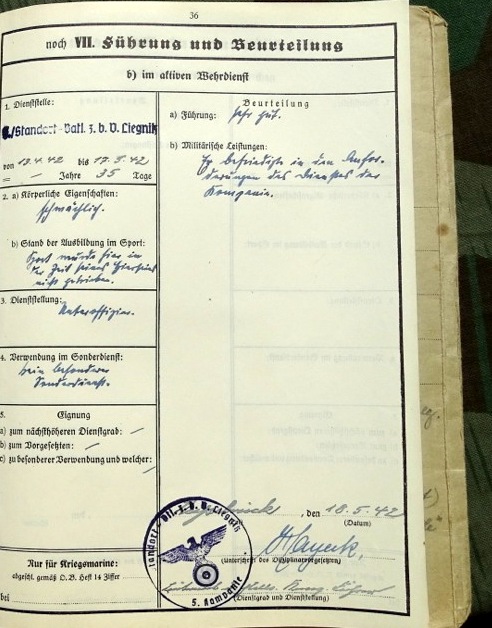 36
noch VII. Führung und Beurteilung
b) im aktiven Wehrdienst
1. Dienststelle:
./Standort-Batl. z.b.V. Liegnitz
von 13.4.42 bis 17.5.42
= — Jahre 35 Tage
2. a) Körperliche Eigenschaften:
schwächlich.
b) Stand der Ausbildung im Sport:
Sport wurde hier in
der Zeit seines Hierseins
nicht getrieben.
3. Dienststellung:
Unteroffizier.
4. Verwendung im Sonderdienst:
kein besonderer
Sonderdienst.
5. Eignung
a) zum nächsthöheren Dienstgrad: —
b) zum Vorgesetzten: —
c) zu besonderer Verwendung und welcher: —
Nur für Kriegsmarine:
abgeschl. gemäß O.B. Heft 14 Ziffer
bei
Beurteilung
a) Führung: sehr gut.
b) Militärische Leistungen:
Er befriedigte in den Anfor-
derungen des Dienstes der
Kompanie.
, den 18.5.42
(Datum)
Hayeck,
(Unterschrift des Disziplinarvorgesetzten)
(Dienstgrad und Dienststellung)
Standort-Btl. z.b.V. Liegnitz
5. Kompanie